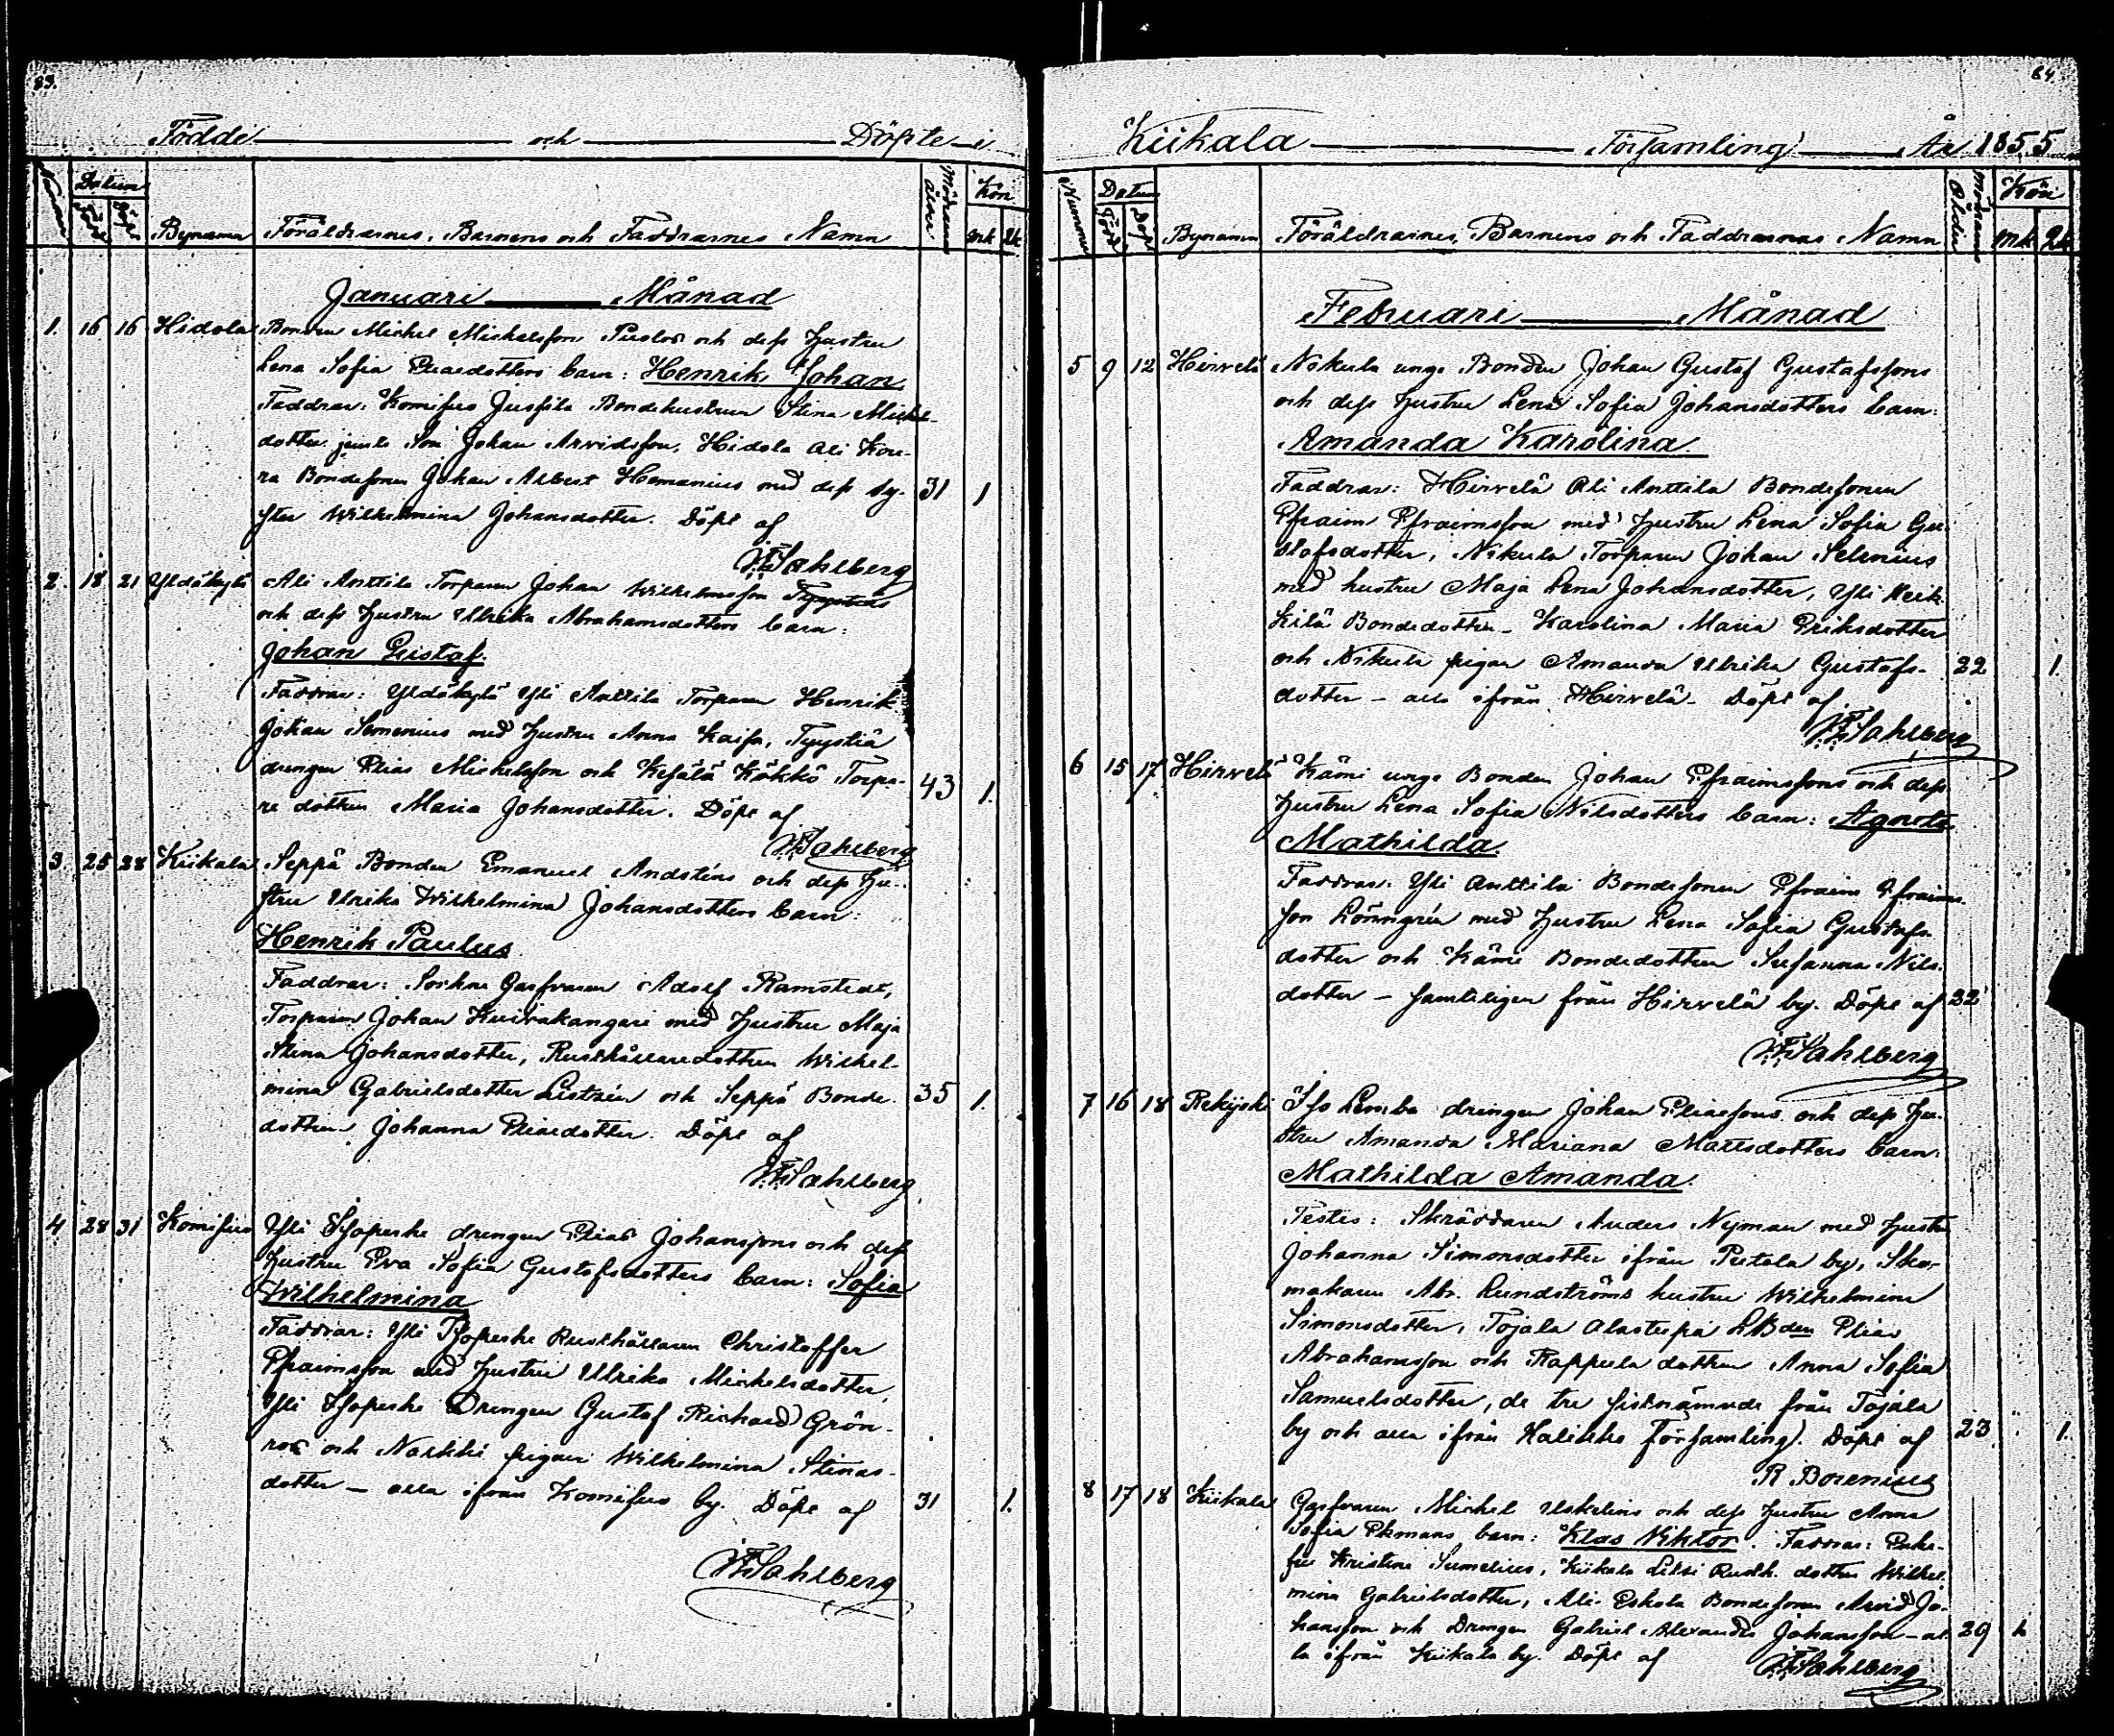 83.
Födde och Döpte i
Nummer Datum Född Döpt Bynamn Föräldrarnes, Barnens och Faddrarnes Namn Modrens ålder Kön mk qk
Januari Månad
1. 16 16 Hidola Bonden Michel Michelsson Puolos och dess hustru
Lena Sofia Eliaedotters barn: Henrik Johan
Faddrar: Komisuo Jussila Bondehustrun Stina Michels-
dotter jemte Son Johan Arvidsson, Hidola Ali Kou-
ra Bondesonen Johan Albert Hemanius med dess sy-
ster Wilhelmina Johansdotter. Döpt af 31 1
W.F. Sahlberg
2. 18 21 Yldäkylä Ali Anttila Torparen Johan Wilhelmsson
och dess hustru Ulrika Abrahamsdotters barn:
Johan Gustaf.
Faddrar: Yldäkylä Yli Anttila Torparen Henrik
Johan Semenius med hustru Anna Kaisa, Tyystiä
drengen Elias Michelsson och Kesälä Kökkö Torpa-
re dottren Maria Johansdotter. Döpt af 43 1.
W.F. Sahlberg
3. 25 28 Kiikala Seppä Bonden Emanuel Andstins och dess hu-
stru Ulrika Wilhelmina Johansdotters barn:
Henrik Paulus
Faddrar: Gasfvaren Adolf Ramstedt,
Torparen Johan Kuivakangari med hustru Maja
Stina Johansdotter, Rusthållaredottren Wilhel-
mina Gabrielsdotter Listrén och Seppä Bonde- 35 1.
dottren Johanna Eliaedotter. Döpt af
W.F. Sahlberg
4 28 31 Komisuo Yli Isopeske drengen Elias Johanssons och dess
hustru Eva Sofia Gustafsdotters barn: Sofia
Wilhelmina
Faddrar: Yli Isopeske Rusthållaren Christoffer
Efraimsson med hustru Ulrika Michelsdotter,
Yli Isopeske Drengen Gustaf Richard Grön-
roos och Narkki pigan Wilhelmina Stinas-
dotter – alla ifrån Komisuo by. Döpt af 31 1.
W.F. Sahlberg
84.
Kiikala Församling År 1855
Nummer Datum Född Döpt Bynamn Föräldrarnes, Barnens och Faddrarnas Namn Modrens Ålder Kön mk qk
Februari Månad
5 9 12 Hirvelä Nikula unge Bonden Johan Gustaf Gustafssons
och dess hustru Lena Sofia Johansdotters barn:
Amanda Karolina.
Faddrar: Hirvelä Ali Anttila Bondesonen
Efraim Efraimsson med hustru Lena Sofia Gu-
stafsdotter, Nikula Torparen Johan Selenius
med hustru Maja Lena Johansdotter, Yli Heik-
kilä Bondedottren Karolina Maria Eriksdotter
och Nikula pigan Amanda Ulrika Gustafs- 22 1.
dotter – alla ifrån Hirvelä. Döpt af
W.F. Sahlberg
6 15 17 Hirvelä Kämi unge Bonden Johan Efraimssons och dess
hustru Lena Sofia Nilsdotters barn: Agneta
Mathilda.
Faddrar: Yli Anttila Bondesonen Efraim Efraims-
son Lönngrén med hustru Lena Sofia Gustafs-
dotter och Kämi Bondedottren Susanna Nils-
dotter – samteligen från Hirvelä by. Döpt af 32
W.F. Sahlberg
7 16 18 Rekijoki Iso Lemba drengen Johan Eliaesons och dess hu-
stru Amanda Mariana Mattsdotters barn:
Mathilda Amanda.
Testes: Skräddaren Anders Nyman med hustru
Johanna Simonsdotter ifrån Pietola by, Sko-
makaren Abr. Lundströms hustru Wilhelmina
Simonsdotter, Tojala Alastupa LBden Elias
Abrahamsson och Rappula dottren Anna Sofia
Samuelsdotter, de tre sistnämnde från Tojala
by och alla ifrån Halikko församling. Döpt af 23 1.
R. Borenius
8 17 18 Kiikala Gasfvaren Michel Uskelins och dess hustru Anna
Sofia Ekmans barn: Klas Viktor. Faddrar: Enke-
fru Kristina Sumelius, Kiikala Lilsi Rusth. dottren Wilhel-
mina Gabrielsdotter, Ali Eskola Bondesonen Arvid Jo-
hansson och Drengen Gabriel Alexander Johansson – al- 29 1
la ifrån Kiikala by. Döpt af W.F. Sahlberg